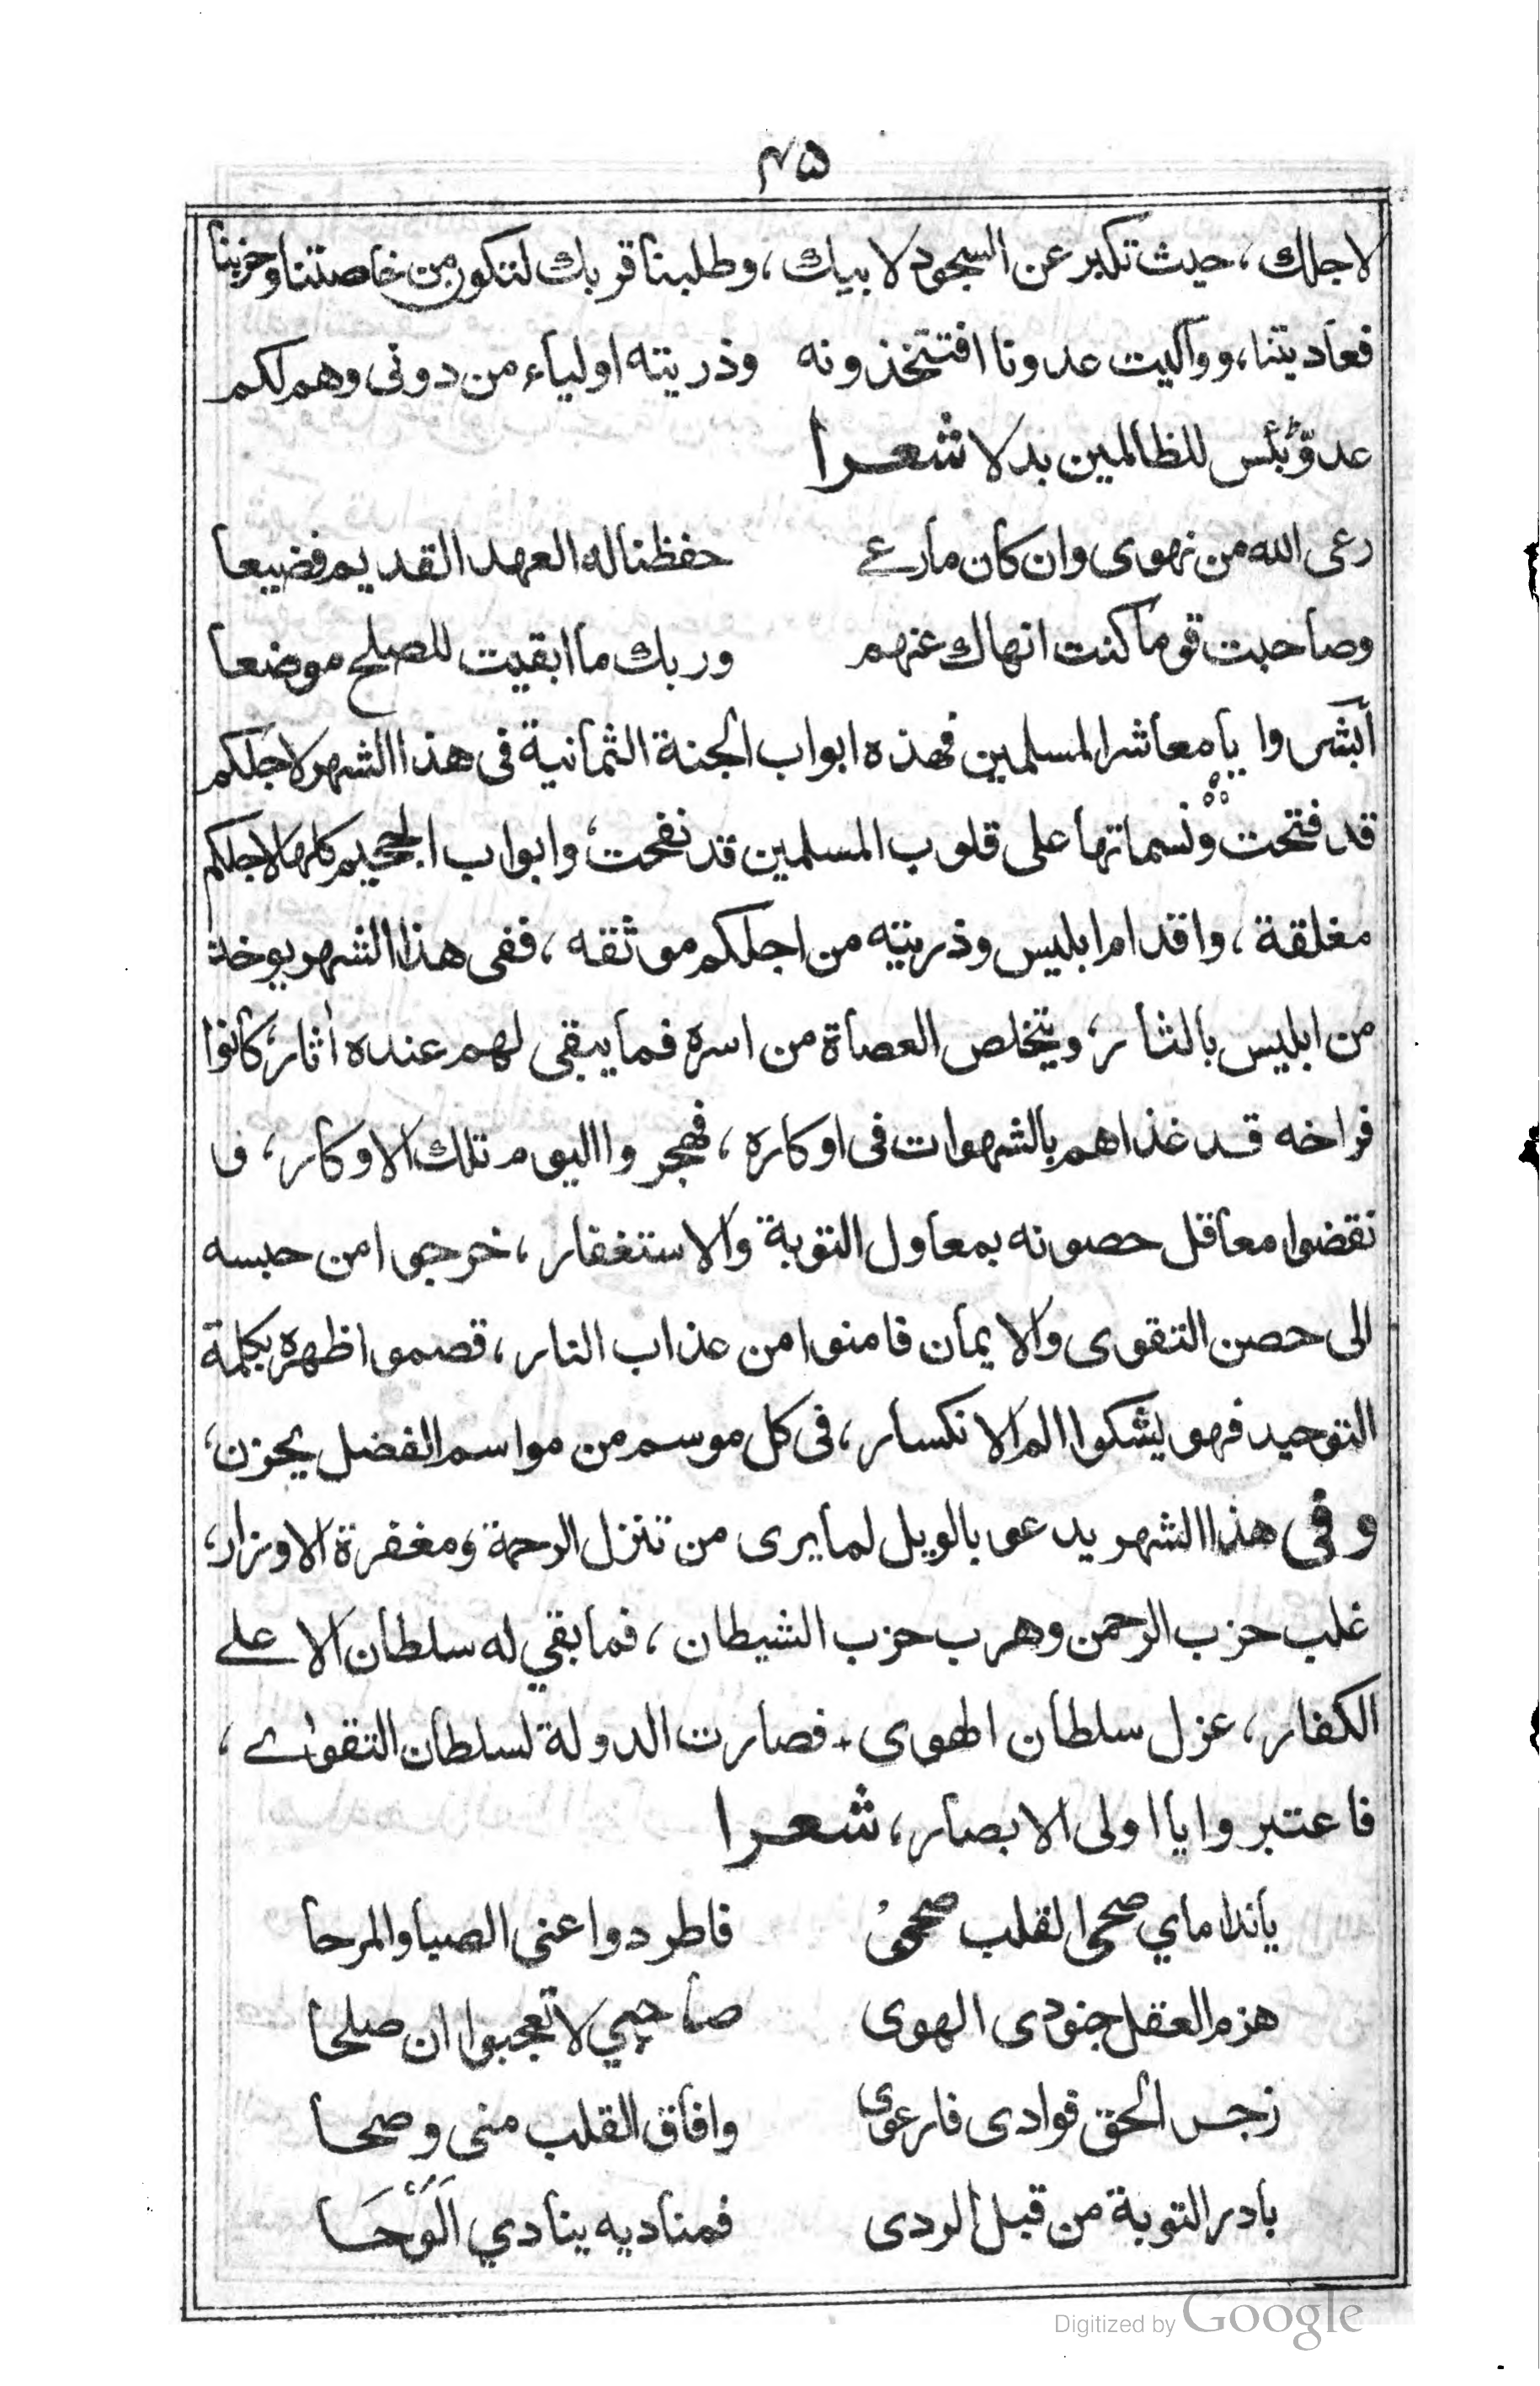 ٤٥
لاجلك، حيث تكبر عن السجود لابيك، وطلبنا قربك لتكون من خاصتنا وحزبنا
فعاديتنا، وواليت عدونا افتتخذونه وذريته اولياء من دونى وهم لكم
عدوّ بئس للظالمين بدلا شعرا
رعى الله من نهوى وان كان مارعے حفظنا له العهد القديم فضيعا
وصاحبت قوما كنت انهاك عنهم وربك ما ابقيت للصلح موضعا
أبشروا يا معاشر المسلمين فهذه ابواب الجنة الثمانية فى هذا الشهر لاجلكم
قد فتحت ونسماتها على قلوب المسلمين قد نفحت، وابواب الجحيم كلها لاجلكم
مغلقة، واقدام ابليس وذريته من اجلكم موثقه، ففى هذا الشهر يوخذ
من ابليس بالثار، ويتخلص العصاة من اسره فما يبقى لهم عنده أثار، كانوا
فراخه قد غذاهم بالشهوات فى اوكاره، فهجروا اليوم تلك الاوكار، و
نقضوا معاقل حصونه بمعاول التوبة والاستغفار، خرجوا من حبسه
الى حصن التقوى والايمان فامنوا من عذاب النار، قصموا ظهره بكلمة
التوحيد فهو يشكوا الم الانكسار، فى كل موسم من مواسم الفضل يحزن،
وفى هذا الشهر يدعو بالويل لما يرى من تنزل الرحمة ومغفرة الاوزار،
غلب حزب الرحمن وهرب حزب الشيطان، فما بقي له سلطان الا علے
الكفار، عزل سلطان الهوى، فصارت الدولة لسلطان التقوٰے،
فاعتبروا يا اولى الابصار، شعرا
يانداماي صحى القلب صحىٰ فاطردوا عنى الصبا والمرحا
هزم العقل جنودى الهوى صاحبي لا تعجبوا ان صلحا
زجر الحق فوادى فارعوى وافاق القلب منى وصحا
بادر التوبة من قبل الردى فمناديه ينادي الوحا
Digitized by Google